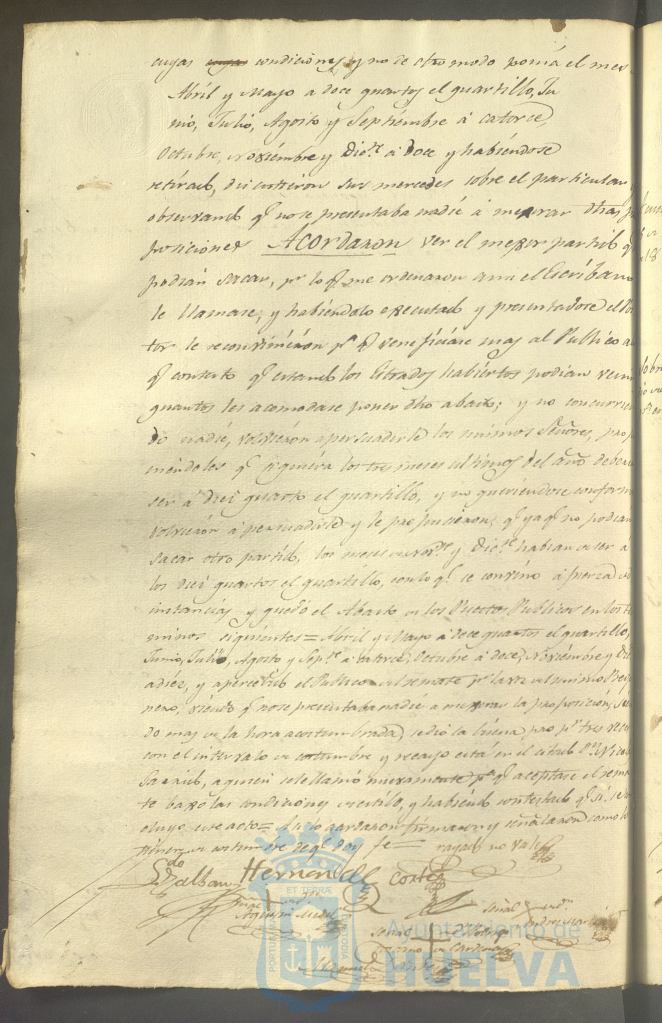 cuyas cuyas condiciones, y no de otro modo ponia el mes
Abril y Mayo a doce quartos el quartillo, Ju
nio, Julio, Agosto y Septiembre á catorce,
Octubre, Noviembre y Dic.e á doce y habiendose
retirado, discutieron sus mercedes sobre el particular y
observando q.e no se presentaba nadie á mejorar dhas p
posiciones Acordaron ver el mejor partido q
podian sacar, p.r lo q.e me ordenaron a mi el Escribano
le llamase, y habiendolo executado y presentadose el Pos
tor le reconvinieron p.a q.e veneficiase mas al Publico a
q.e contextó q.e estando los Estrados habiertos podian venir
quantos les acomodase poner dho abasto; y no concurrien
do nadie, volvieron a persuadirle los mismos Señores, pro
niendole q.e siquiera los tres meses ultimos del año debe
ser á diez quartos el quartillo, y no queriendose conforma
volvieron á persuadirle y le propusieron, q.e ya q.e no podian
sacar otro partido, los meses Nov.e y Dic.e habian de ser á
los diez quartos el quartillo, con lo q.e se convino á fuerza de
instancias y quedó el Abasto en los Puestos Publicos en los ter
minos siguientes = Abril y Mayo á doce quartos el quartillo,
Junio, Julio, Agosto y Sep.e á catorce, Octubre á doce, Noviembre y Di
a diez, y apercevido el Publico al remate p.r la voz del mismo Pre
nero, viendo q.e no se presentaba nadie a mejorar la proposicion, sien
do mas de la hora acostumbrada, se dió la buena pro p.r tres veces
con el intervalo de costumbre y recayó esta en el citado D.n Nicol
a quien se le llamó nuevamente p.a q.e aceptase el rema
te baxo las condiciones de estilo, y habiendo contestado q.e sí, se con
cluyó este acto = firmaron y señalaron como lo
tienen de costumbre de q.e doy fe = rayado no vale
Hernandez Cortés
Señal de
Señal de
Señal de
ET TERRÆ
PORTUS
CUSTODIA
Ayuntamiento de
HUELVA